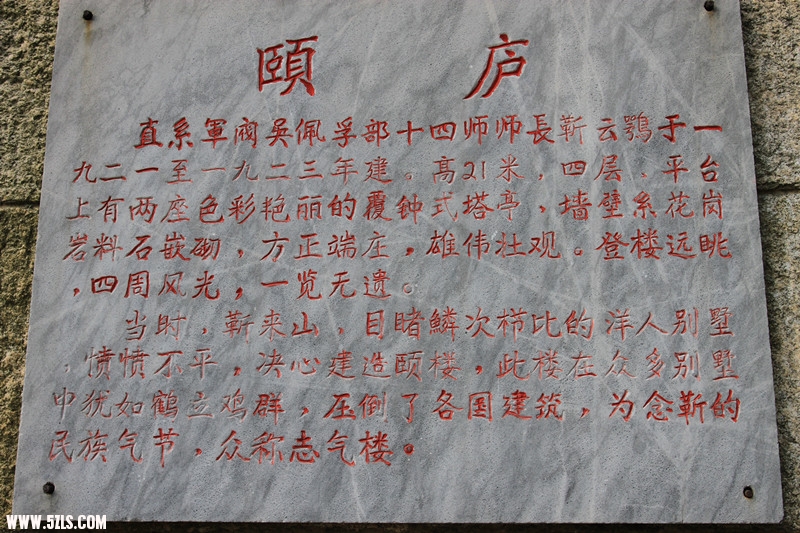 颐庐
直系軍阀吳佩孚部十四师师長靳云鹗于一
九二一至一九二三年建。高21米，四层、平台
上有两座色彩艳丽的覆钟式塔亭，墙壁系花岗
岩料石嵌砌，方正端庄，雄伟壮观。登楼远眺
，四周风光，一览无遗。
当时，靳来山，目睹鳞次栉比的洋人别墅
，愤愤不平，决心建造颐楼，此楼在众多别墅
中犹如鹤立鸡群，压倒了各国建筑，为念靳的
民族气节，众称志气楼。
WWW.5ZLS.COM